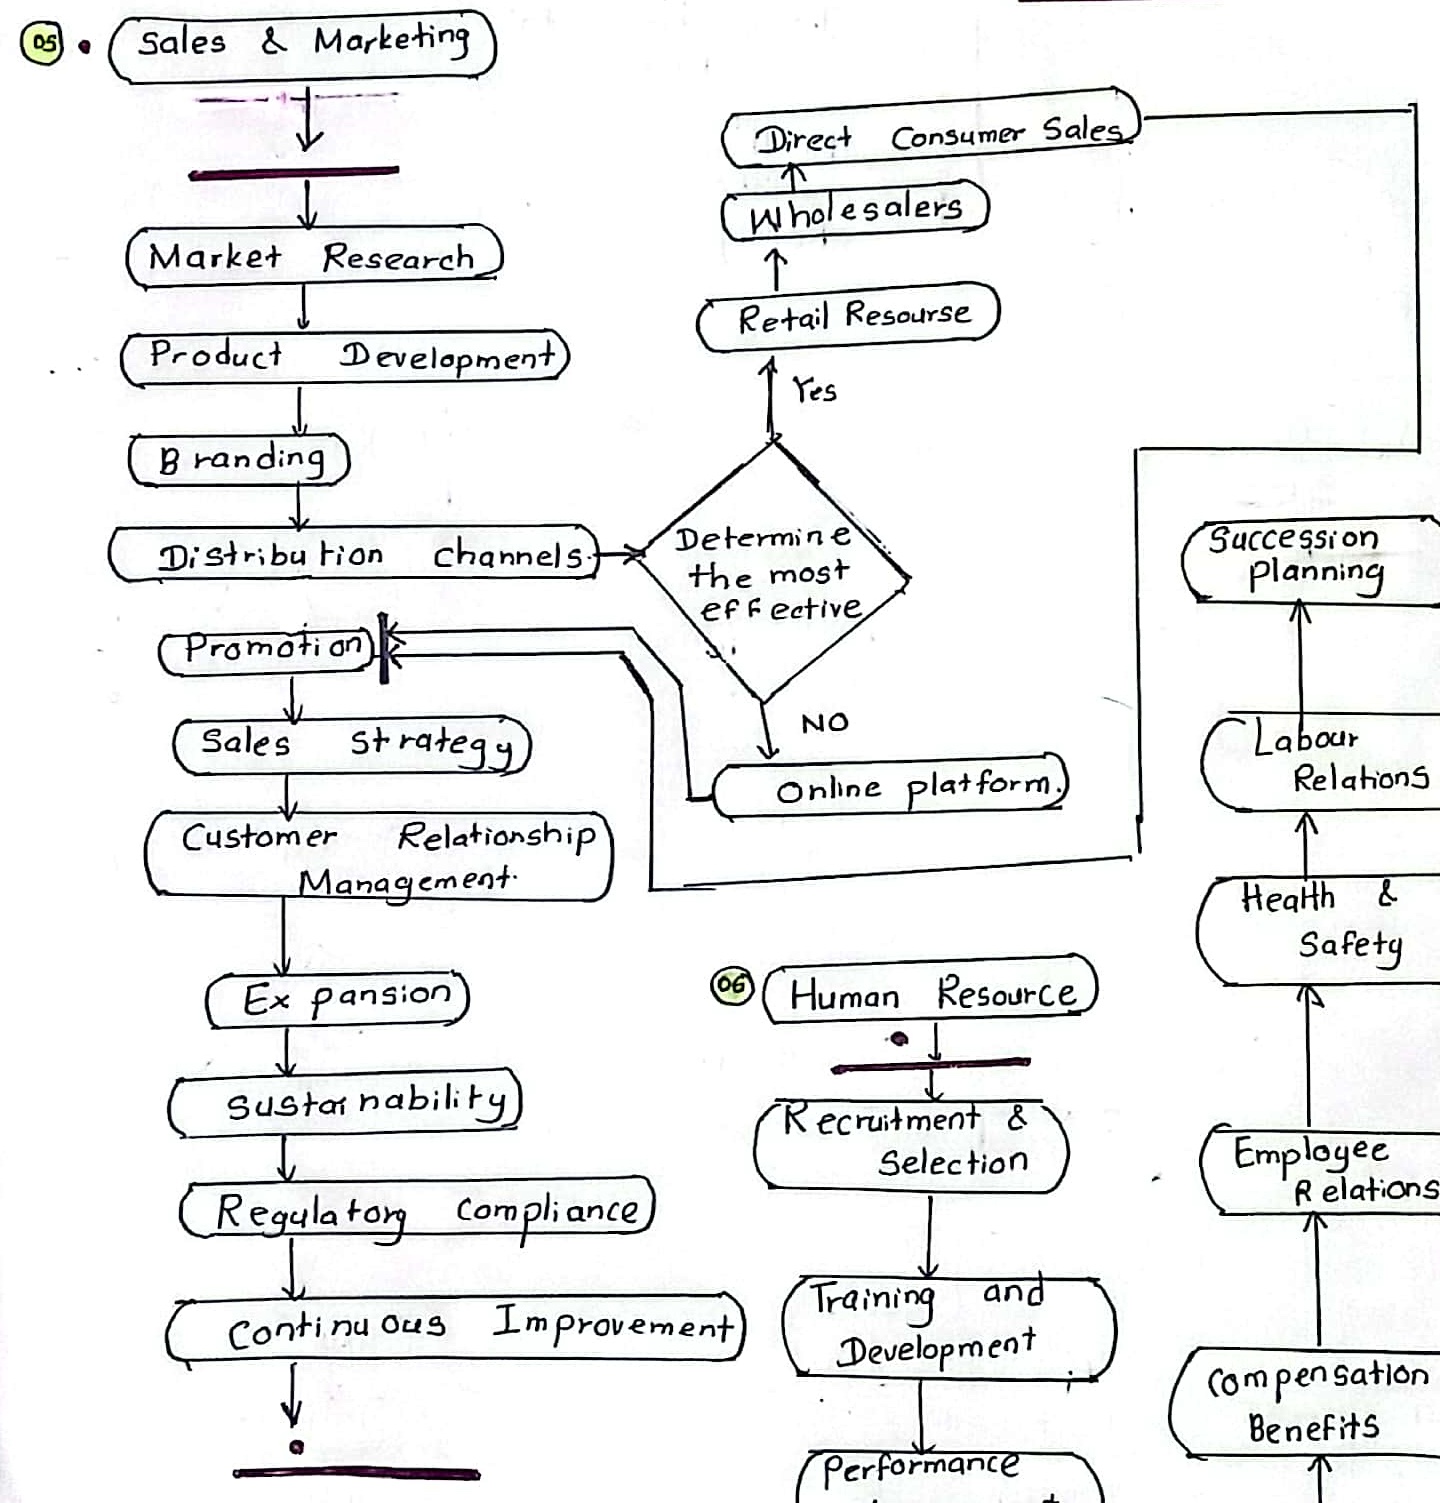 05
Sales & Marketing
Market Research
Product Development
Branding
Distribution Channels.
Determine
the most
effective
Yes
Retail Resourse
Wholesalers
Direct Consumer Sales
NO
Online platform.
Promotion
Sales Strategy
Customer Relationship
Management.
Expansion
Sustainability
Regulatory Compliance
Continuous Improvement
06
Human Resource
Recruitment &
Selection
Training and
Development
Performance
Succession
planning
Labour
Relations
Health &
Safety
Employee
Relations
Compensation
Benefits